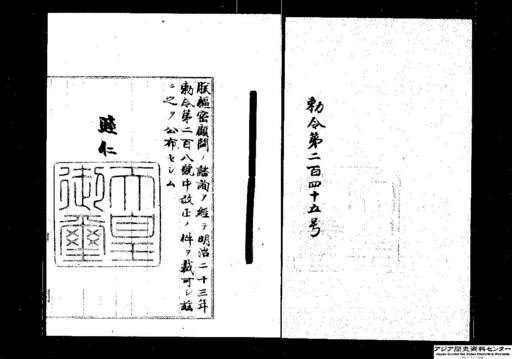 勅令第二百四十五号
朕樞密顧問ノ諮詢ヲ経テ明治二十三年
勅令第二百八號中改正ノ件ヲ裁可シ茲
ニ之ヲ公布セシム
睦仁
天皇
御璽
アジア歴史資料センター
Japan Center for Asian Historical Records